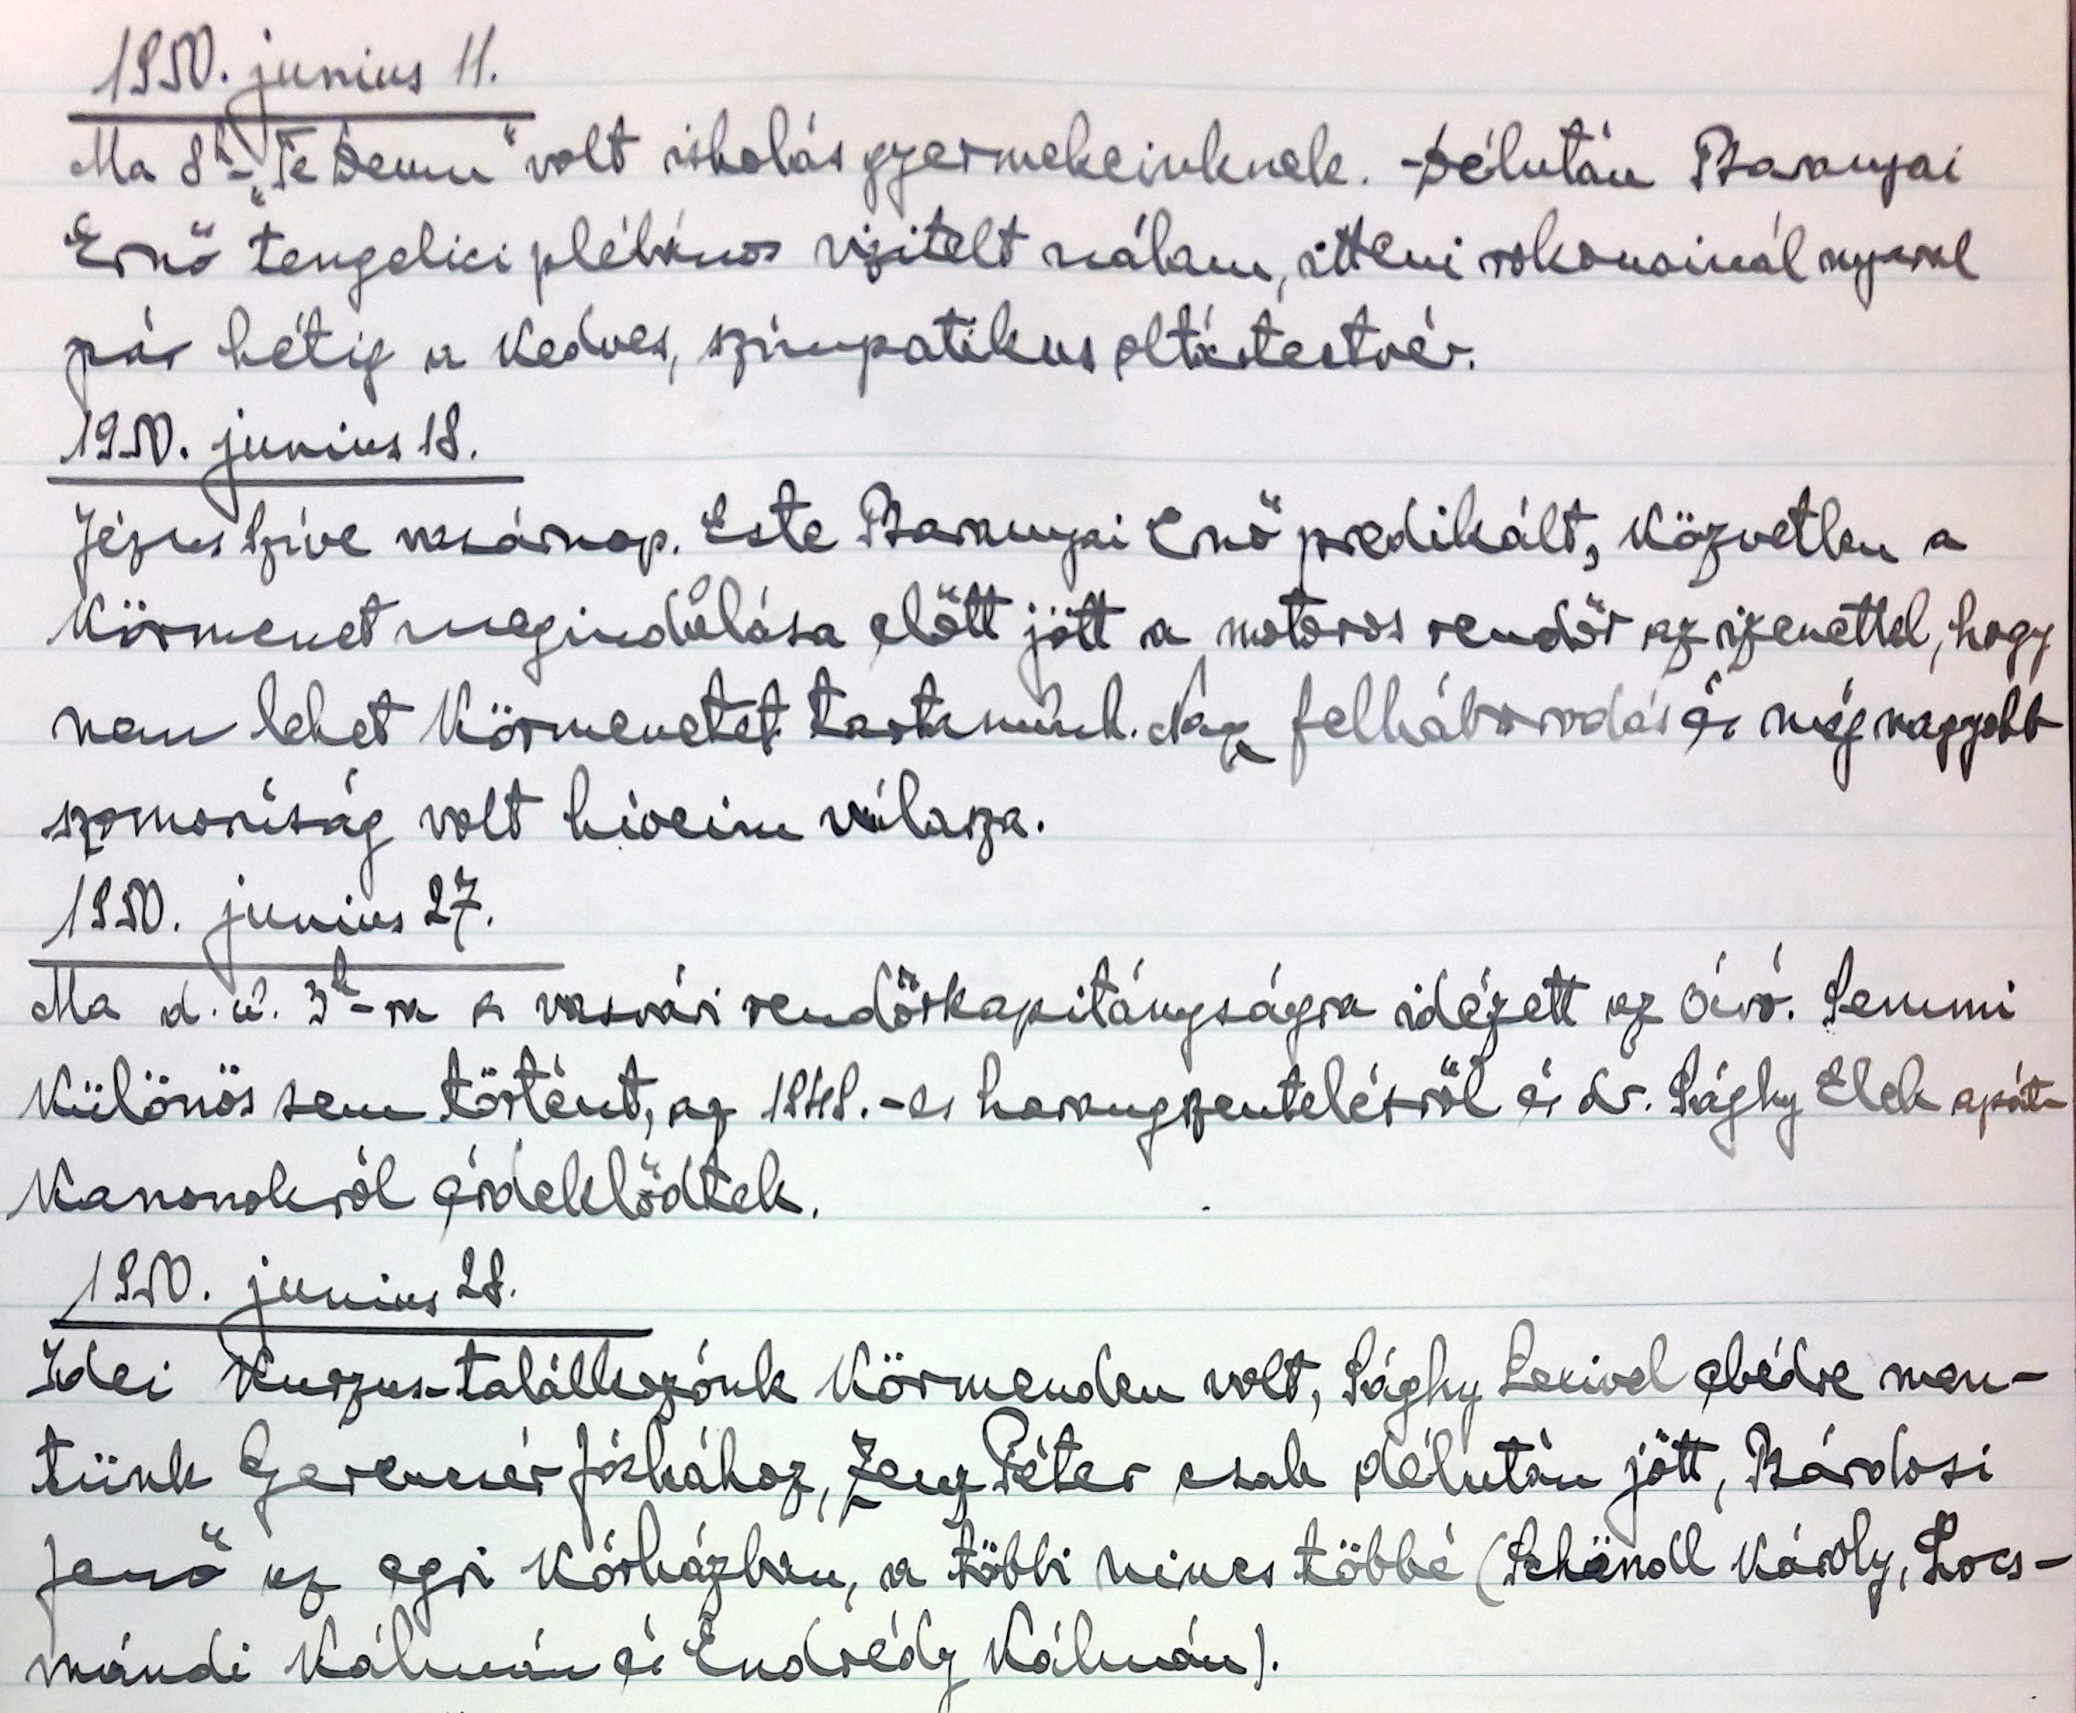 1950. junius 11.
Ma 8h-„Te Deum" volt iskolás gyermekeinknek. - Délután Baranyai
Ernő tengelici plébános vizitelt nálam, itteni rokonainál nyaral
pár hétig a kedves, szimpatikus oltártestvér.
1950. junius 18.
Jézus Szíve vasárnap. Este Baranyai Ernő predikált, közvetlen a
körmenet megindulása előtt jött a motoros rendőr az izenettel, hogy
nem lehet körmenetet tartanunk. Nagy felháborodás és még nagyobb
szomorúság volt híveim válasza.
1950. junius 27.
Ma d. u. 3h-ra a vasvári rendőrkapitányságra idézett az Semmi
különös sem történt, az 1948.-as harangszentelésről és dr. Sághy Elek apát
kanonokról érdeklődtek.
1950. junius 28.
Idei kurzus-találkozónk Körmenden volt, Sághy Lexivel ebédre men-
tünk Gerencsér Jóskához, Zeng Péter csak délután jött, Bárdosi
Jenő az egri kórházban, a többi nincs többé (Schändl Károly, Locs-
mándi Kálmán és Endrédy Kálmán).